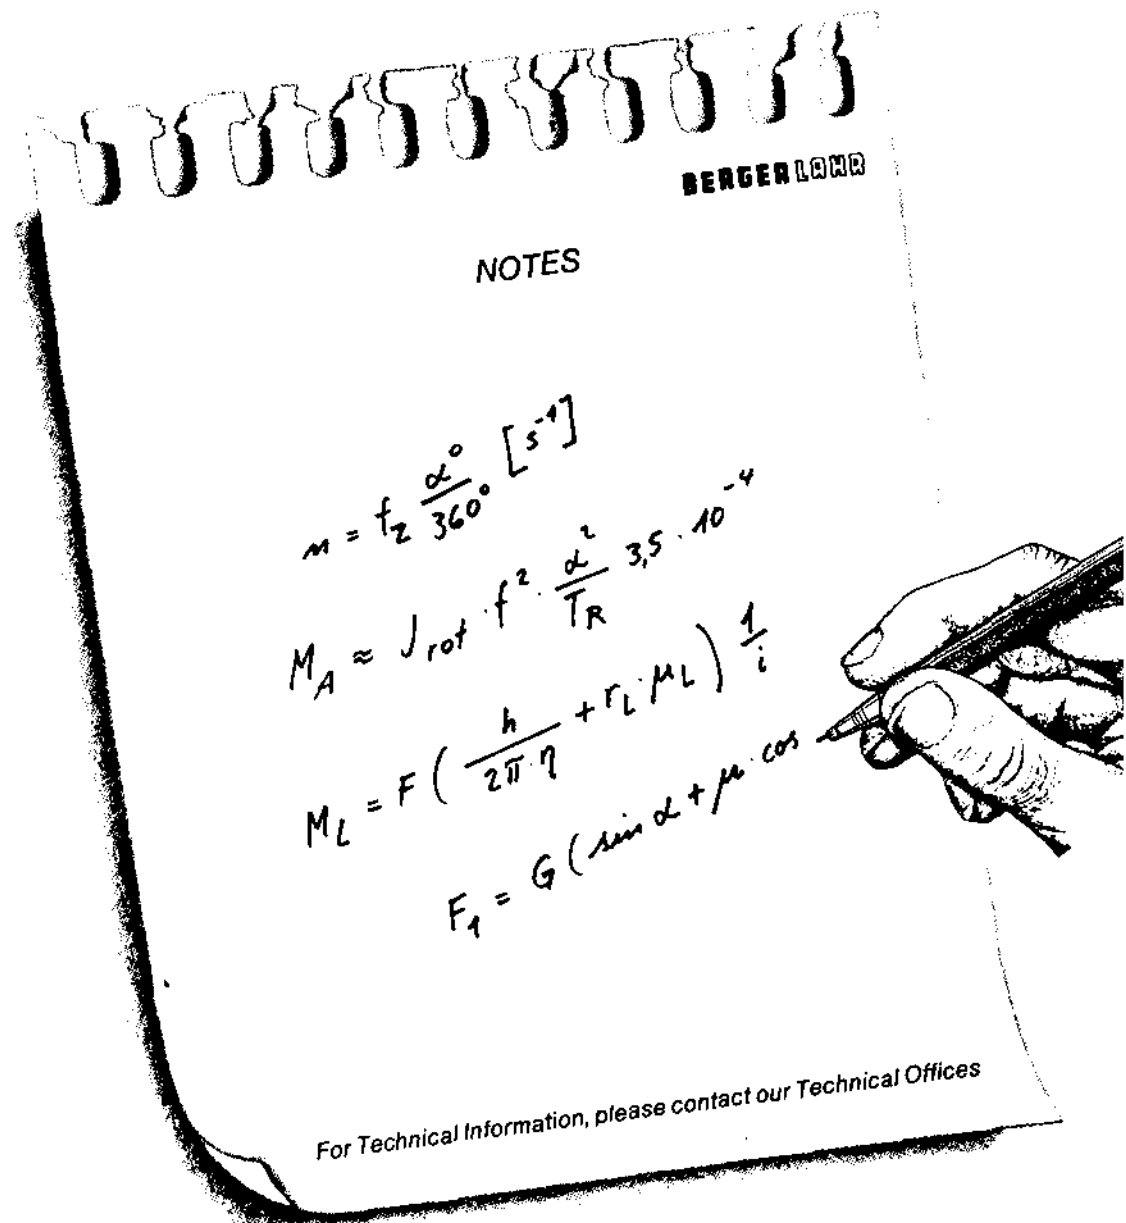 BERGER LAHR
NOTES
n = f_z α°/360° [s⁻¹]
M_A ≈ J_rot · f² · α²/T_R 3,5 · 10⁻⁴
M_L = F ( h/2π·η + r_L · μ_L ) 1/i
F₁ = G ( sin α + μ · cos
For Technical Information, please contact our Technical Offices